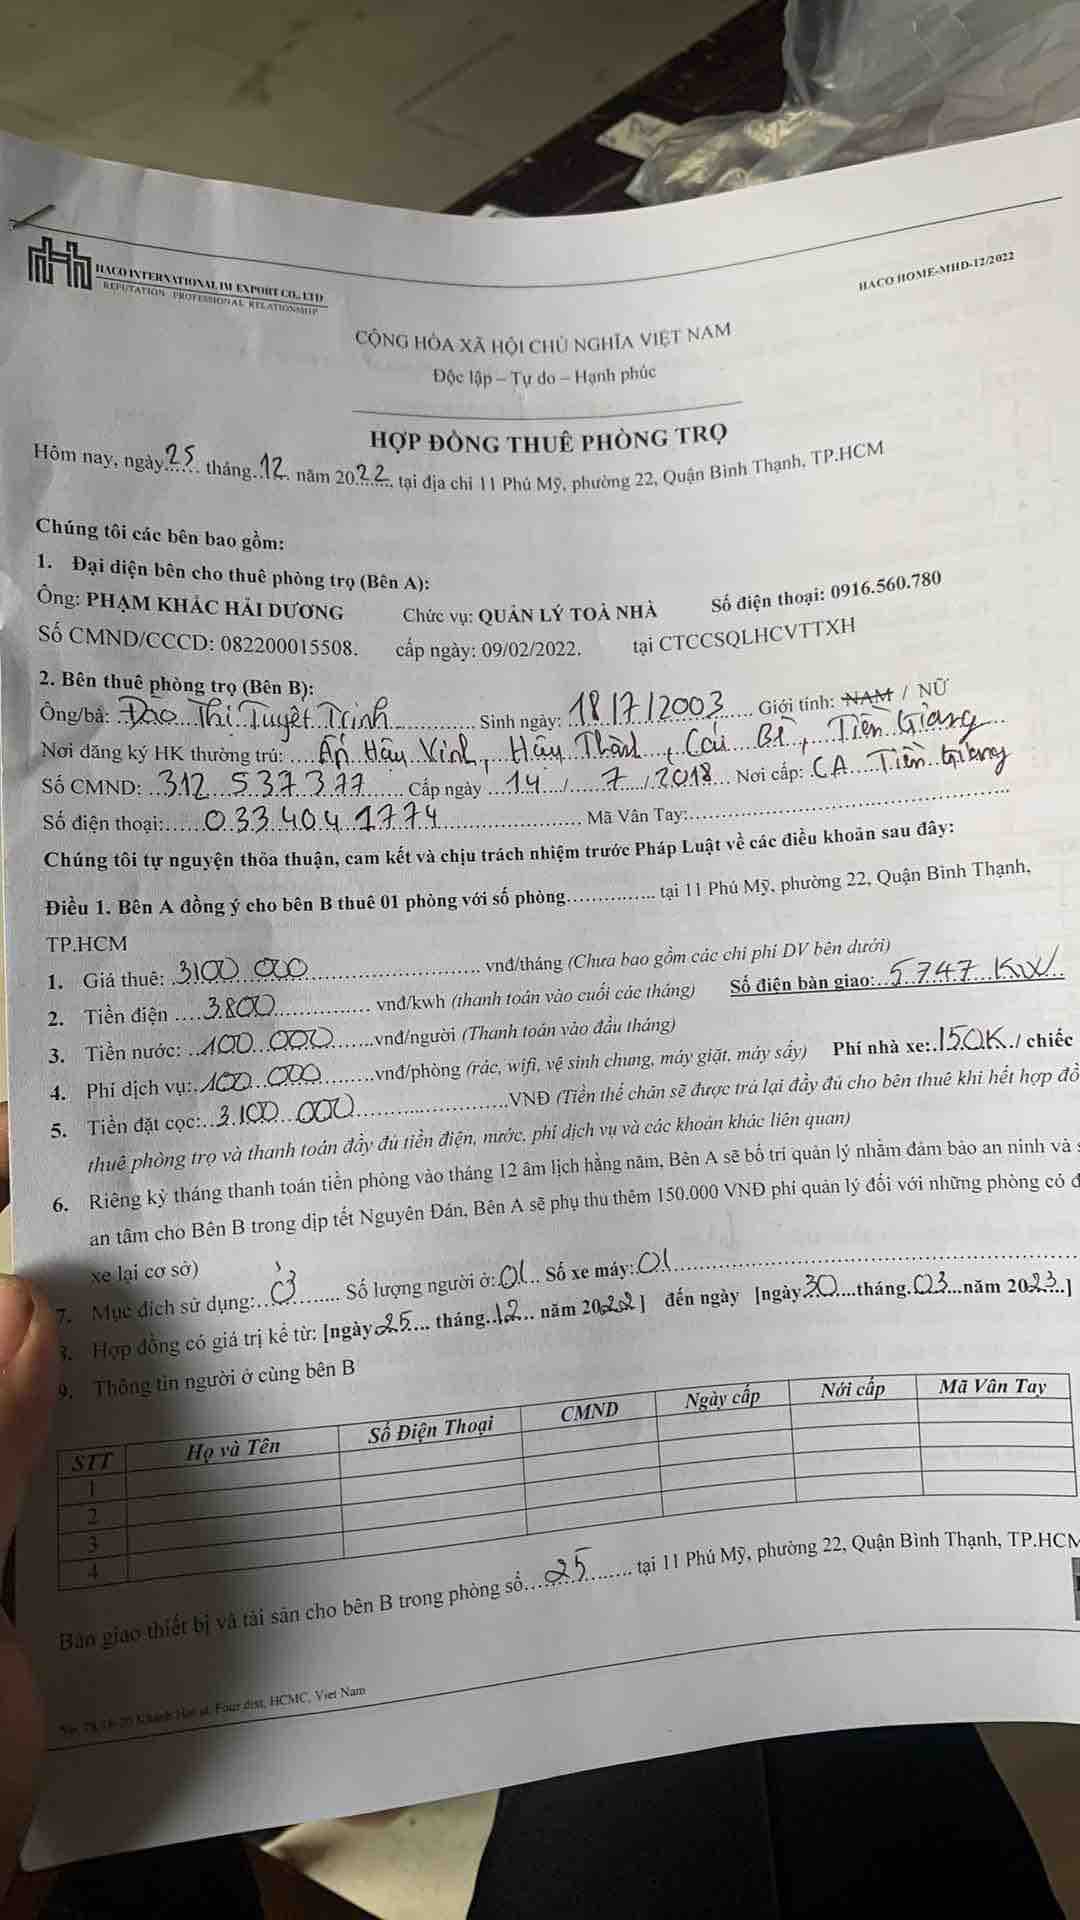 HACO INTERNATIONAL IM EXPORT CO., LTD
REPUTATION PROFESSIONAL RELATIONSHIP
HACO HOME-MHD-12/2022
CỘNG HÒA XÃ HỘI CHỦ NGHĨA VIỆT NAM
Độc lập – Tự do – Hạnh phúc
HỢP ĐỒNG THUÊ PHÒNG TRỌ
Hôm nay, ngày 25 tháng 12 năm 2022, tại địa chỉ 11 Phú Mỹ, phường 22, Quận Bình Thạnh, TP.HCM
Chúng tôi các bên bao gồm:
1. Đại diện bên cho thuê phòng trọ (Bên A):
Ông: PHẠM KHẮC HẢI DƯƠNG Chức vụ: QUẢN LÝ TOÀ NHÀ Số điện thoại: 0916.560.780
Số CMND/CCCD: 082200015508. cấp ngày: 09/02/2022. tại CTCCSQLHCVTTXH
2. Bên thuê phòng trọ (Bên B):
Ông/bà: Đào Thị Tuyết Trinh Sinh ngày: 18/7/2003 Giới tính: NAM / NỮ
Nơi đăng ký HK thường trú: Ấp Hậu Vinh, Hậu Thành, Cái Bè, Tiền Giang
Số CMND: 312 537 377 Cấp ngày 14 / 7 / 2018 Nơi cấp: CA Tiền Giang
Số điện thoại: 033 404 1774 Mã Vân Tay:
Chúng tôi tự nguyện thỏa thuận, cam kết và chịu trách nhiệm trước Pháp Luật về các điều khoản sau đây:
Điều 1. Bên A đồng ý cho bên B thuê 01 phòng với số phòng............... tại 11 Phú Mỹ, phường 22, Quận Bình Thạnh,
TP.HCM
1. Giá thuê: 3100 000 vnđ/tháng (Chưa bao gồm các chi phí DV bên dưới)
2. Tiền điện 3.800 vnđ/kwh (thanh toán vào cuối các tháng) Số điện bàn giao: 5747 KW
3. Tiền nước: 100 000 vnđ/người (Thanh toán vào đầu tháng)
4. Phí dịch vụ: 100 000 vnđ/phòng (rác, wifi, vệ sinh chung, máy giặt, máy sấy) Phí nhà xe: 150K / chiếc
5. Tiền đặt cọc: 3.100 000 VNĐ (Tiền thế chân sẽ được trả lại đầy đủ cho bên thuê khi hết hợp đồ
thuê phòng trọ và thanh toán đầy đủ tiền điện, nước, phí dịch vụ và các khoản khác liên quan)
6. Riêng kỳ tháng thanh toán tiền phòng vào tháng 12 âm lịch hằng năm, Bên A sẽ bố trí quản lý nhằm đảm bảo an ninh và
an tâm cho Bên B trong dịp tết Nguyên Đán, Bên A sẽ phụ thu thêm 150.000 VNĐ phí quản lý đối với những phòng có
xe lại cơ sở)
7. Mục đích sử dụng: Số lượng người ở: 01 Số xe máy: 01
8. Hợp đồng có giá trị kể từ: [ngày 25 tháng 12 năm 2022] đến ngày [ngày 30 tháng 03 năm 2023]
9. Thông tin người ở cùng bên B
STT Họ và Tên Số Điện Thoại CMND Ngày cấp Nới cấp Mã Vân Tay
1
2
3
4
Bàn giao thiết bị và tài sản cho bên B trong phòng số 25 tại 11 Phú Mỹ, phường 22, Quận Bình Thạnh, TP.HCM
Four dist, HCMC, Viet Nam